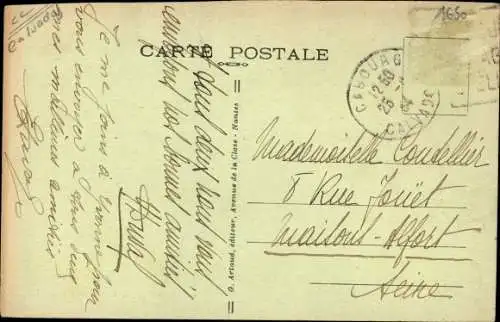 CC
Calvados
1650
CARTE POSTALE
CABOURG
12 30
25
CALVADOS
à vous deux nous
envoyons nos bonnes amitiés
Je me joins à Yvonne pour
vous envoyer à tous deux
mes meilleures amitiés
G. Artaud, éditeur, Avenue de la Close - Nantes
Mademoiselle Coudellier
8 Rue Jouët
Maisons-Alfort
Seine